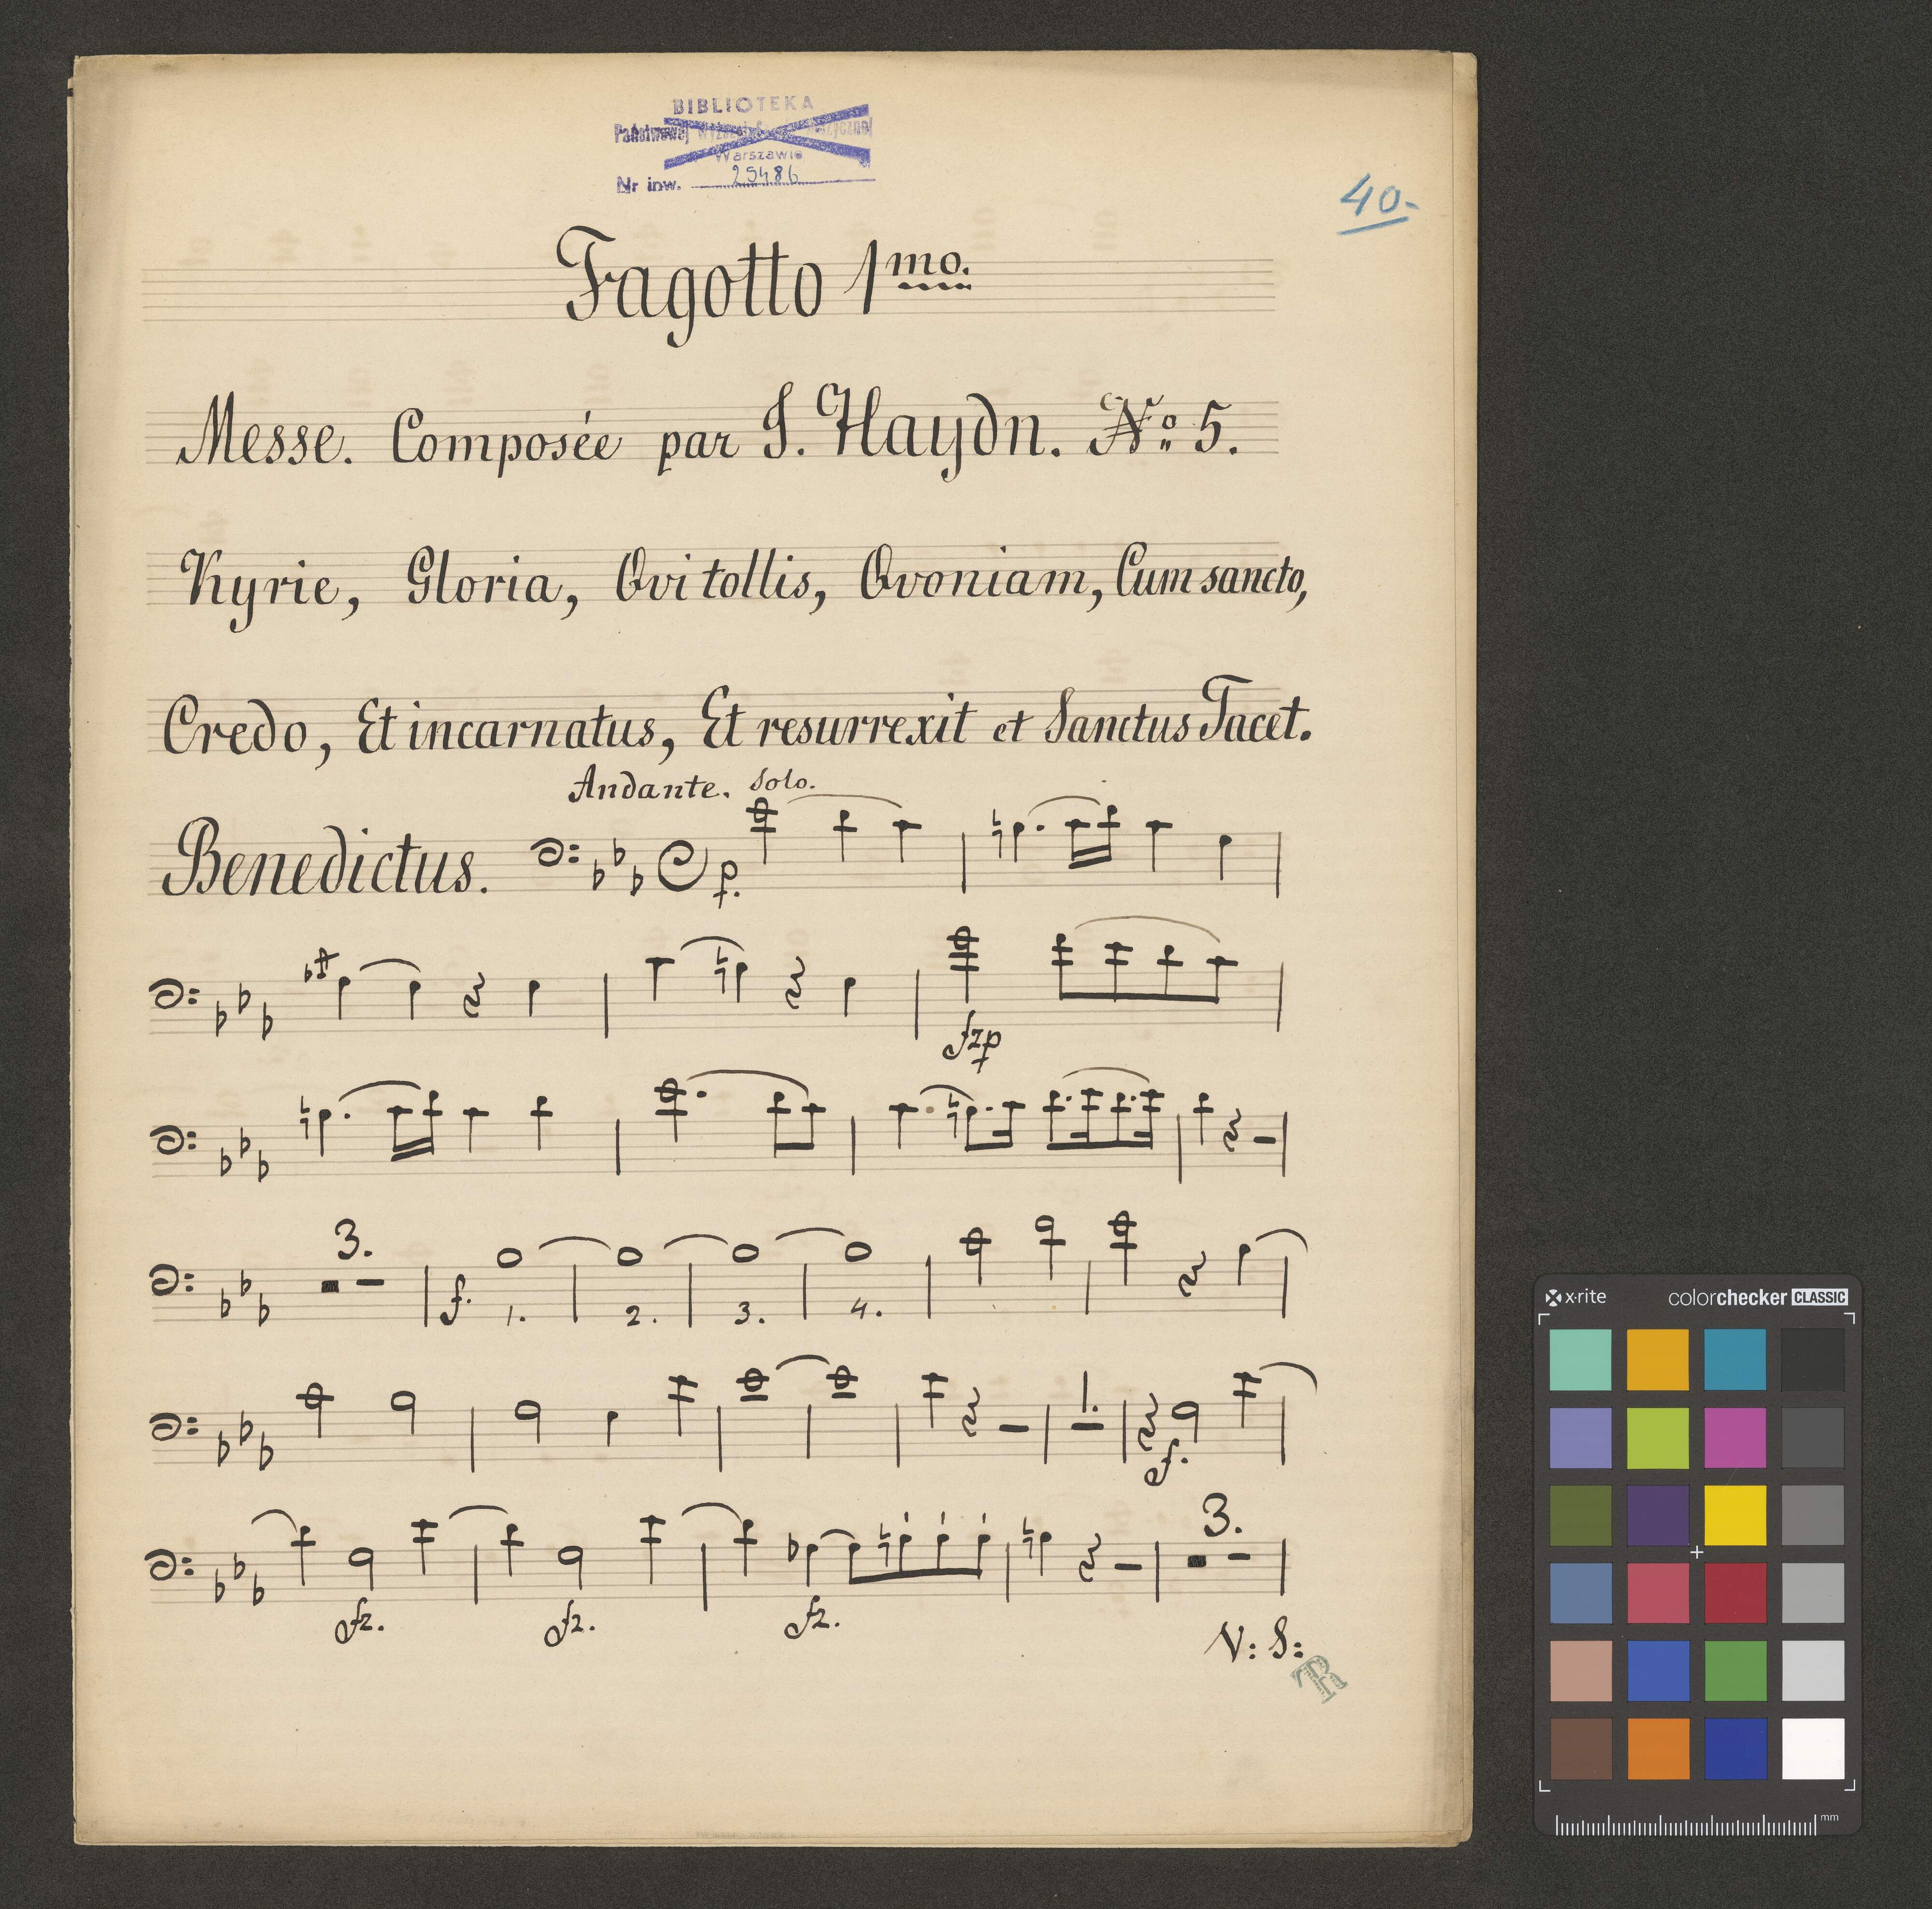 BIBLIOTEKA
Państwowej Wyższej
Warszawie
Nr inw. 25486
40-
Fagotto 1mo.
Messe. Composée par J. Haydn. No 5.
Kyrie, Gloria, Qvi tollis, Qvoniam, Cum sancto,
Credo, Et incarnatus, Et resurrexit et Sanctus Tacet.
Andante. Solo.
Benedictus. p.
fzp
3.
f. 1. 2. 3. 4.
1.
f.
3.
fz. fz. fz.
V: S:
TR
x·rite colorchecker CLASSIC
mm